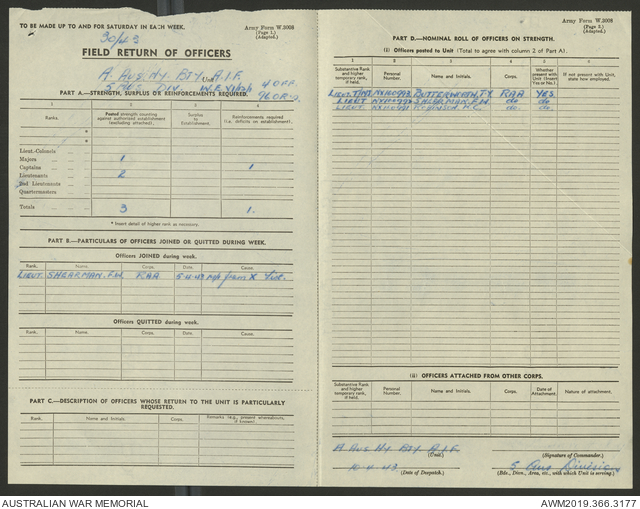 TO BE MADE UP TO AND FOR SATURDAY IN EACH WEEK.
Army Form W.3008
(Page 1.)
(Adapted.)
30/43
FIELD RETURN OF OFFICERS
A. Aus. Hy. Bty. A.I.F.
Unit
5 Aus. Div.
PART A.—STRENGTH, SURPLUS OR REINFORCEMENTS REQUIRED.
1 2 3 4
Ranks.
Posted strength counting against authorized establishment (excluding attached).
Surplus to Establishment.
Reinforcements required (i.e., deficits on establishment).
*
*
Lieut.-Colonels
Majors 1
Captains 1
Lieutenants 2
2nd Lieutenants
Quartermasters
Totals 3 1.
* Insert detail of higher rank as necessary.
PART B.—PARTICULARS OF OFFICERS JOINED OR QUITTED DURING WEEK.
Officers JOINED during week.
Rank. Name. Corps. Date. Cause.
LIEUT. SHEARMAN. F.W. RAA 5-4-43 from X List.
Officers QUITTED during week.
Rank. Name. Corps. Date. Cause.
PART C.—DESCRIPTION OF OFFICERS WHOSE RETURN TO THE UNIT IS PARTICULARLY REQUESTED.
Rank. Name and Initials. Corps. Remarks (e.g., present whereabouts, if known).
Army Form W.3008
(Page 2.)
(Adapted.)
PART D.—NOMINAL ROLL OF OFFICERS ON STRENGTH.
(i) Officers posted to Unit (Total to agree with column 2 of Part A).
1 2 3 4 5 6
Substantive Rank and higher temporary rank, if held.
Personal Number.
Name and Initials.
Corps.
Whether present with Unit (Insert Yes or No.).
If not present with Unit, state how employed.
LIEUT. BUTTERWORTH, F.X RAA YES.
LIEUT SHEARMAN. F.W. do do
LIEUT. ROBINSON. do. do.
(ii) OFFICERS ATTACHED FROM OTHER CORPS.
Substantive Rank and higher temporary rank, if held.
Personal Number.
Name and Initials.
Corps.
Date of Attachment.
Nature of attachment.
A Aus Hy Bty A.I.F.
(Unit). (Signature of Commander.)
10-4-43 5 Aus Division
(Date of Despatch). (Bde., Divn., Area, etc., with which Unit is serving.)
AUSTRALIAN WAR MEMORIAL AWM2019.366.3177